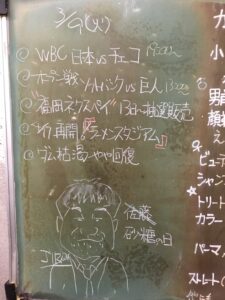 3/9(火)
◎ WBC 日本 vs チェコ 19:00〜
◎ オープン戦 ソフトバンク vs 巨人 13:00〜
◎ "福岡 13日〜抽選販売
◎ 再開『ラーメンスタジアム』
◎ ダム枯渇 やや回復
佐藤
砂糖の日
小
男
顔
ビュー
シャン
トリート
カラー
パーマ
ストレート